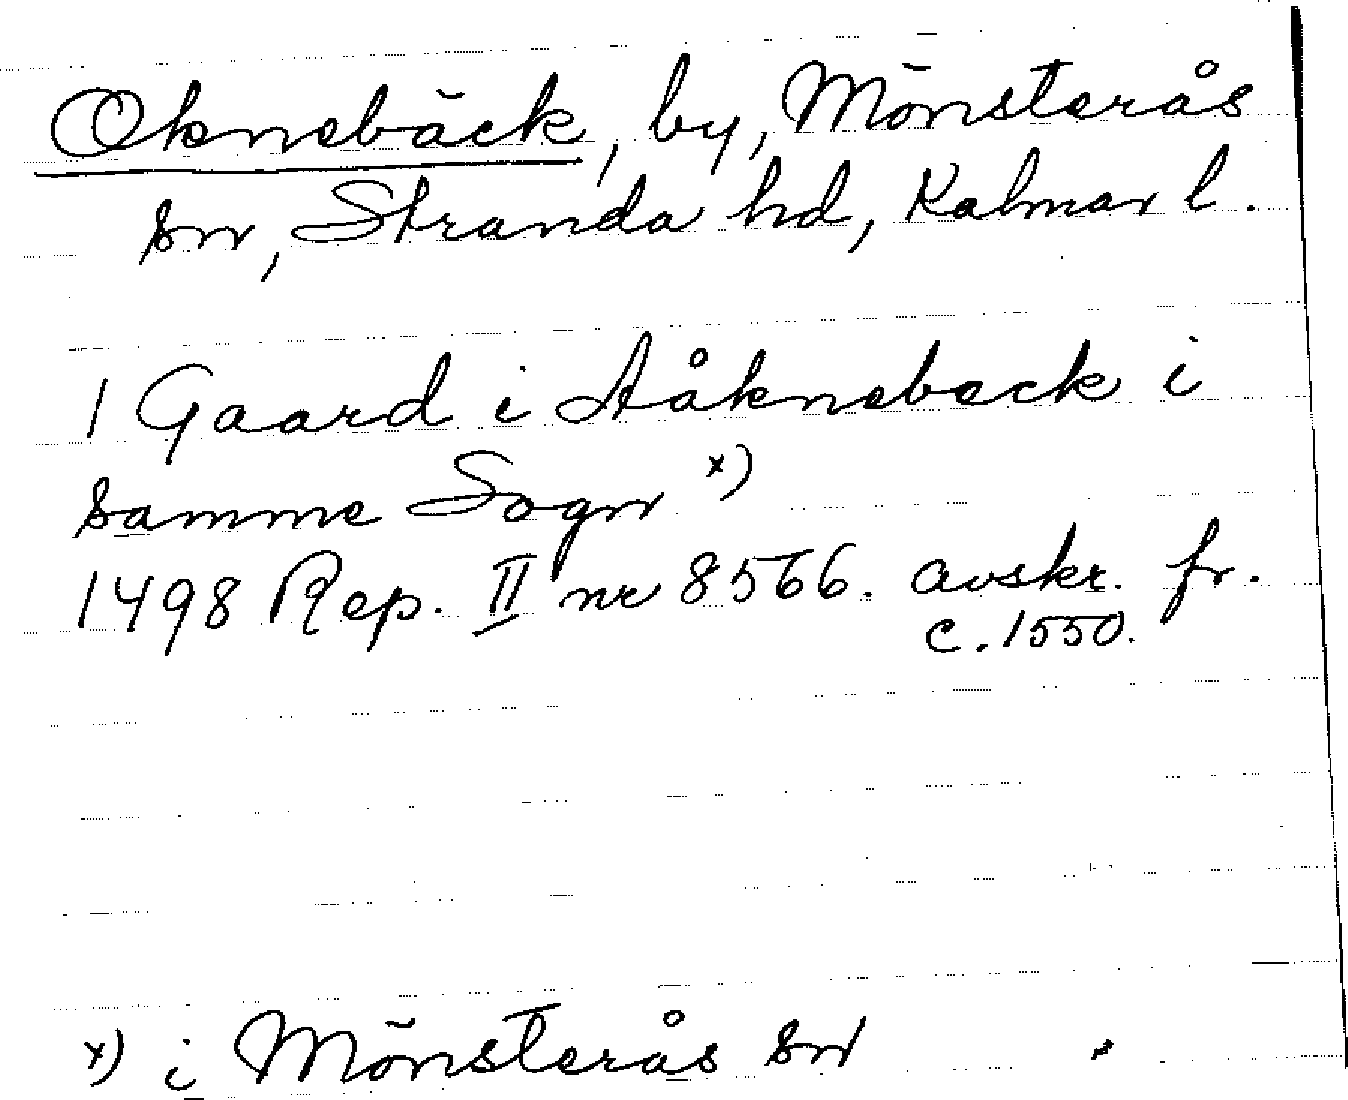 Oknebäck, by, Mönsterås
sn, Stranda hd, Kalmar l.
1 Gaard i Aåkneback i
samme Sogn x)
1498 Rep. II nr 8566. avskr. fr.
c. 1550.
x) i Mönsterås sn